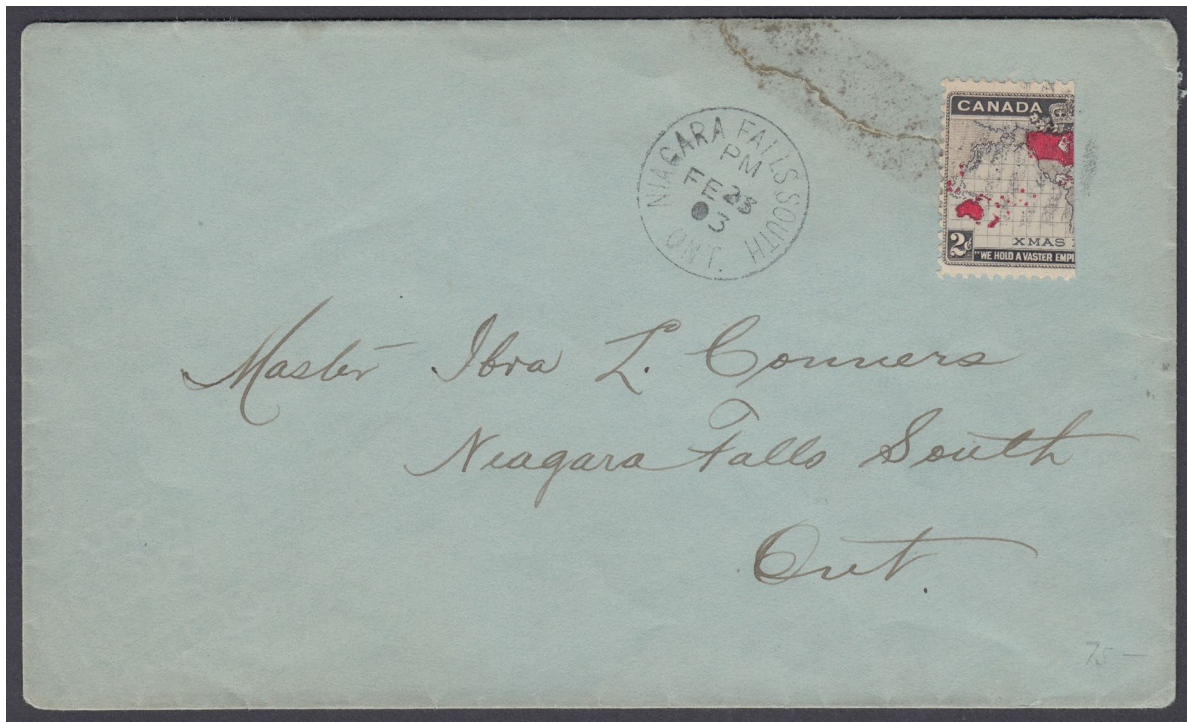 NIAGARA FALLS SOUTH
PM
FE 23
3
ONT.
CANADA
2¢
XMAS
"WE HOLD A VASTER EMPI
Master Ibra L. Conners
Niagara Falls South
Ont.
75 —